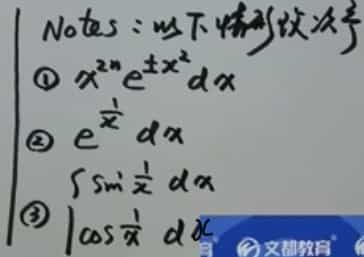 Notes：以下情形改次序
① x^{2n} e^{±x^2} dx
② e^{\frac{1}{x}} dx
③ { sin \frac{1}{x} dx
cos \frac{1}{x} dx
文都教育